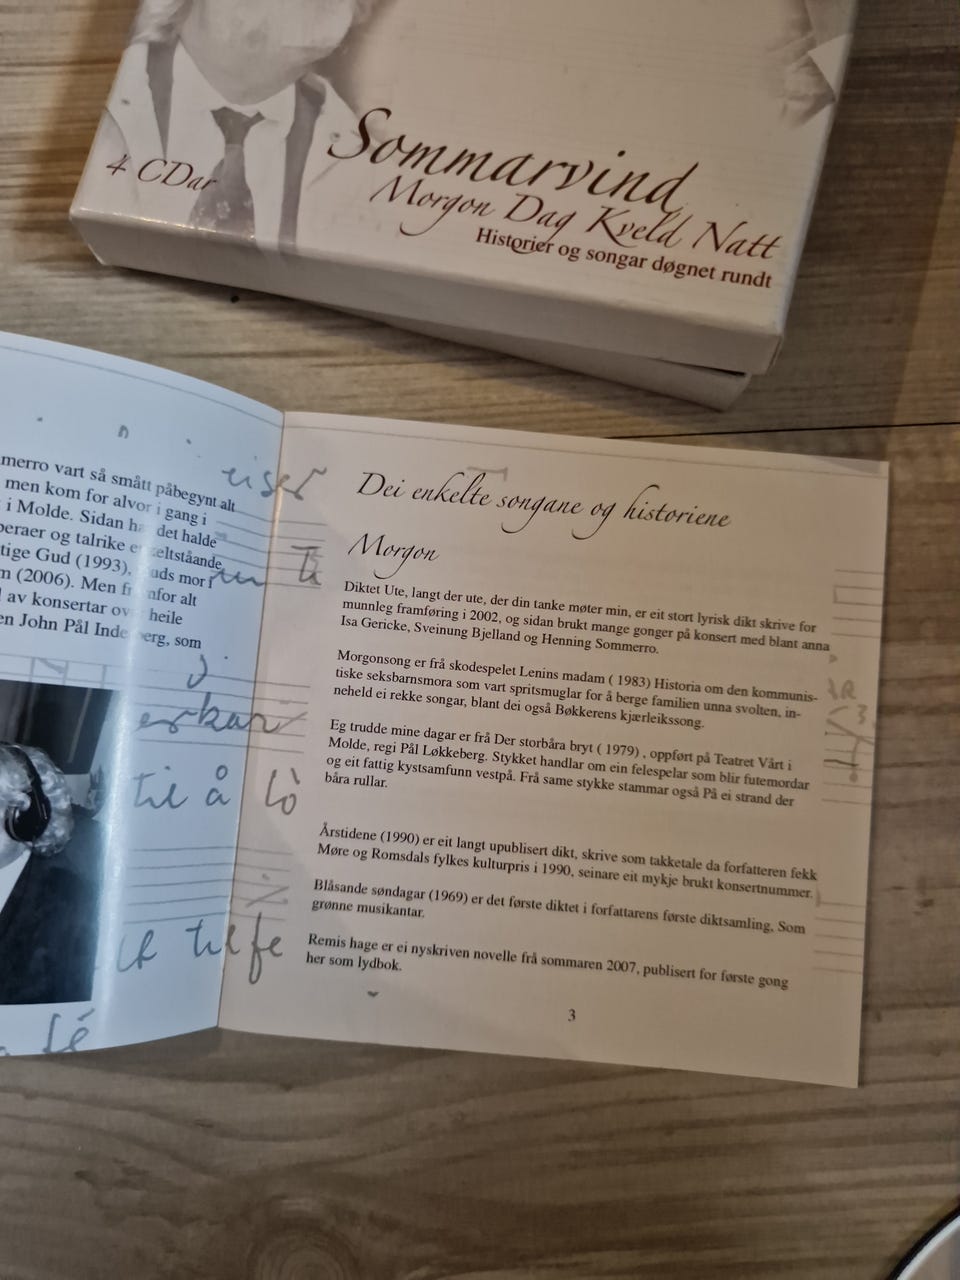 4 CDar
Sommarvind
Morgon Dag Kveld Natt
Historier og songar døgnet rundt
merro vart så smått påbegynt alt
men kom for alvor i gang i
i Molde. Sidan det halde
peraer og talrike
tige Gud (1993), mor i
m (2006). Men alt
av konsertar heile
en John Pål som
eiser
til å lò
Dei enkelte songane og historiene
Morgon
Diktet Ute, langt der ute, der din tanke møter min, er eit stort lyrisk dikt skrive for
munnleg framføring i 2002, og sidan brukt mange gonger på konsert med blant anna
Isa Gericke, Sveinung Bjelland og Henning Sommerro.
Morgonsong er frå skodespelet Lenins madam ( 1983) Historia om den kommunis-
tiske seksbarnsmora som vart spritsmuglar for å berge familien unna svolten, in-
neheld ei rekke songar, blant dei også Bøkkerens kjærleikssong.
Eg trudde mine dagar er frå Der storbåra bryt ( 1979) , oppført på Teatret Vårt i
Molde, regi Pål Løkkeberg. Stykket handlar om ein felespelar som blir futemordar
og eit fattig kystsamfunn vestpå. Frå same stykke stammar også På ei strand der
båra rullar.
Årstidene (1990) er eit langt upublisert dikt, skrive som takketale da forfatteren fekk
Møre og Romsdals fylkes kulturpris i 1990, seinare eit mykje brukt konsertnummer.
Blåsande søndagar (1969) er det første diktet i forfattarens første diktsamling, Som
grønne musikantar.
Remis hage er ei nyskriven novelle frå sommaren 2007, publisert for første gong
her som lydbok.
3